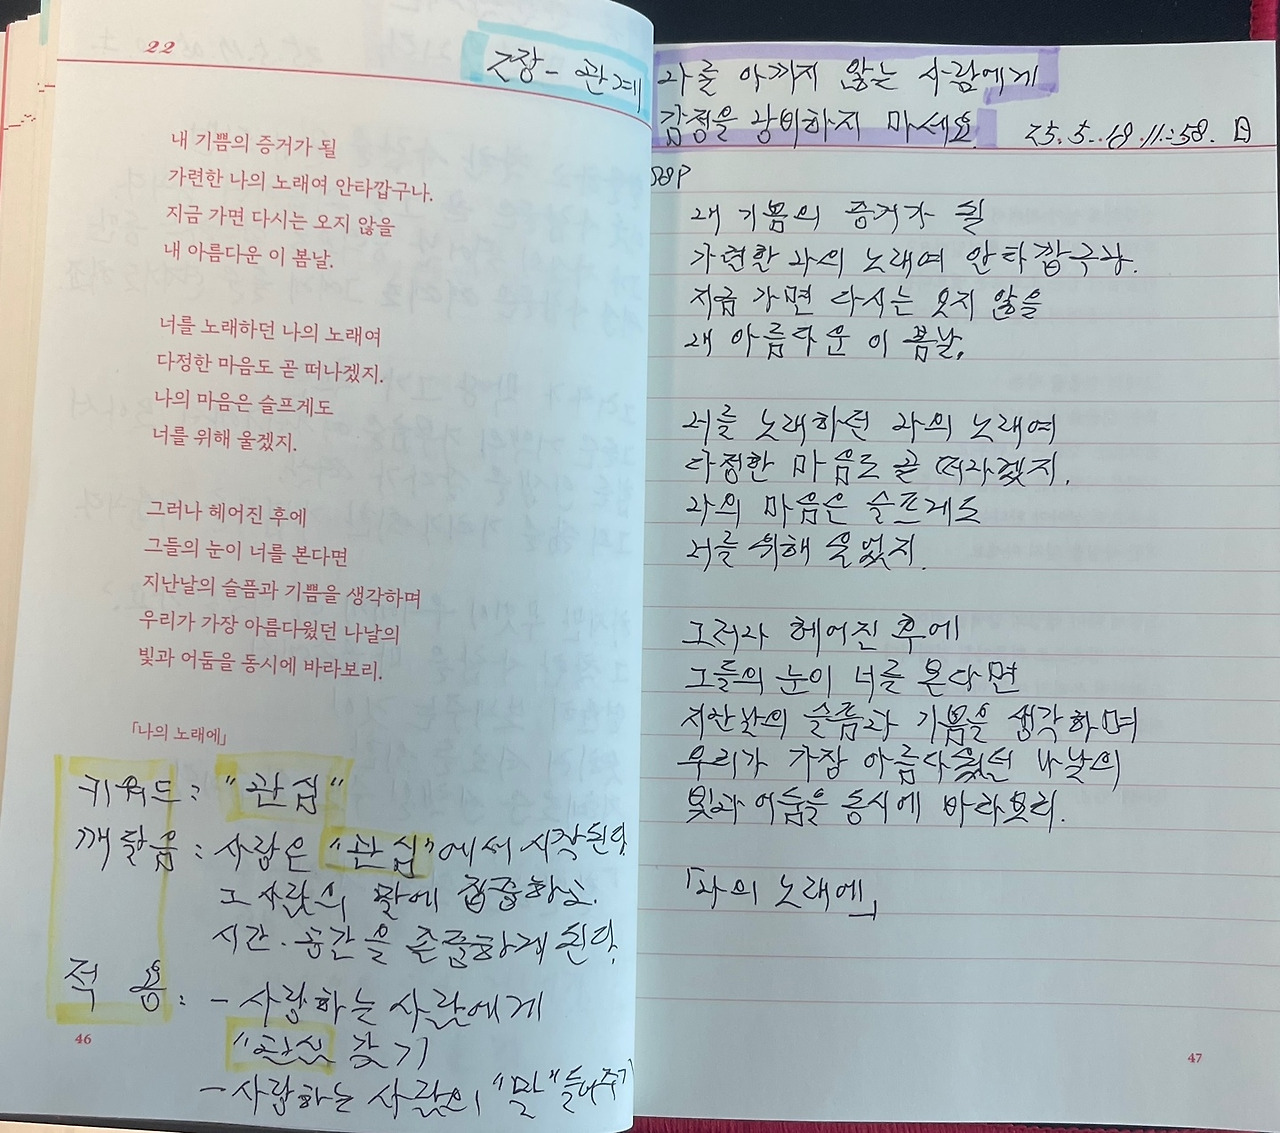 22
2장 - 관계
내 기쁨의 증거가 될
가련한 나의 노래여 안타깝구나.
지금 가면 다시는 오지 않을
내 아름다운 이 봄날.
너를 노래하던 나의 노래여
다정한 마음도 곧 떠나겠지.
나의 마음은 슬프게도
너를 위해 울겠지.
그러나 헤어진 후에
그들의 눈이 너를 본다면
지난날의 슬픔과 기쁨을 생각하며
우리가 가장 아름다웠던 나날의
빛과 어둠을 동시에 바라보리.
「나의 노래에」
키워드 : "관심"
깨달음 : 사람은 "관심"에서 시작된다.
그 사람의 말에 집중하고.
시간·공간을 존중하게 된다.
적용 : - 사랑하는 사람에게
"관심" 갖기
- 사랑하는 사람의 "말" 들어주기
46
나를 아끼지 않는 사람에게
감정을 낭비하지 마세요. 25.5.18.11:58. 日
내 기쁨의 증거가 될
가련한 나의 노래여 안타깝구나.
지금 가면 다시는 오지 않을
내 아름다운 이 봄날.
너를 노래하던 나의 노래여
다정한 마음도 곧 떠나겠지.
나의 마음은 슬프게도
너를 위해 울겠지.
그러나 헤어진 후에
그들의 눈이 너를 본다면
지난날의 슬픔과 기쁨을 생각하며
우리가 가장 아름다웠던 나날의
빛과 어둠을 동시에 바라보리.
「나의 노래에」
47